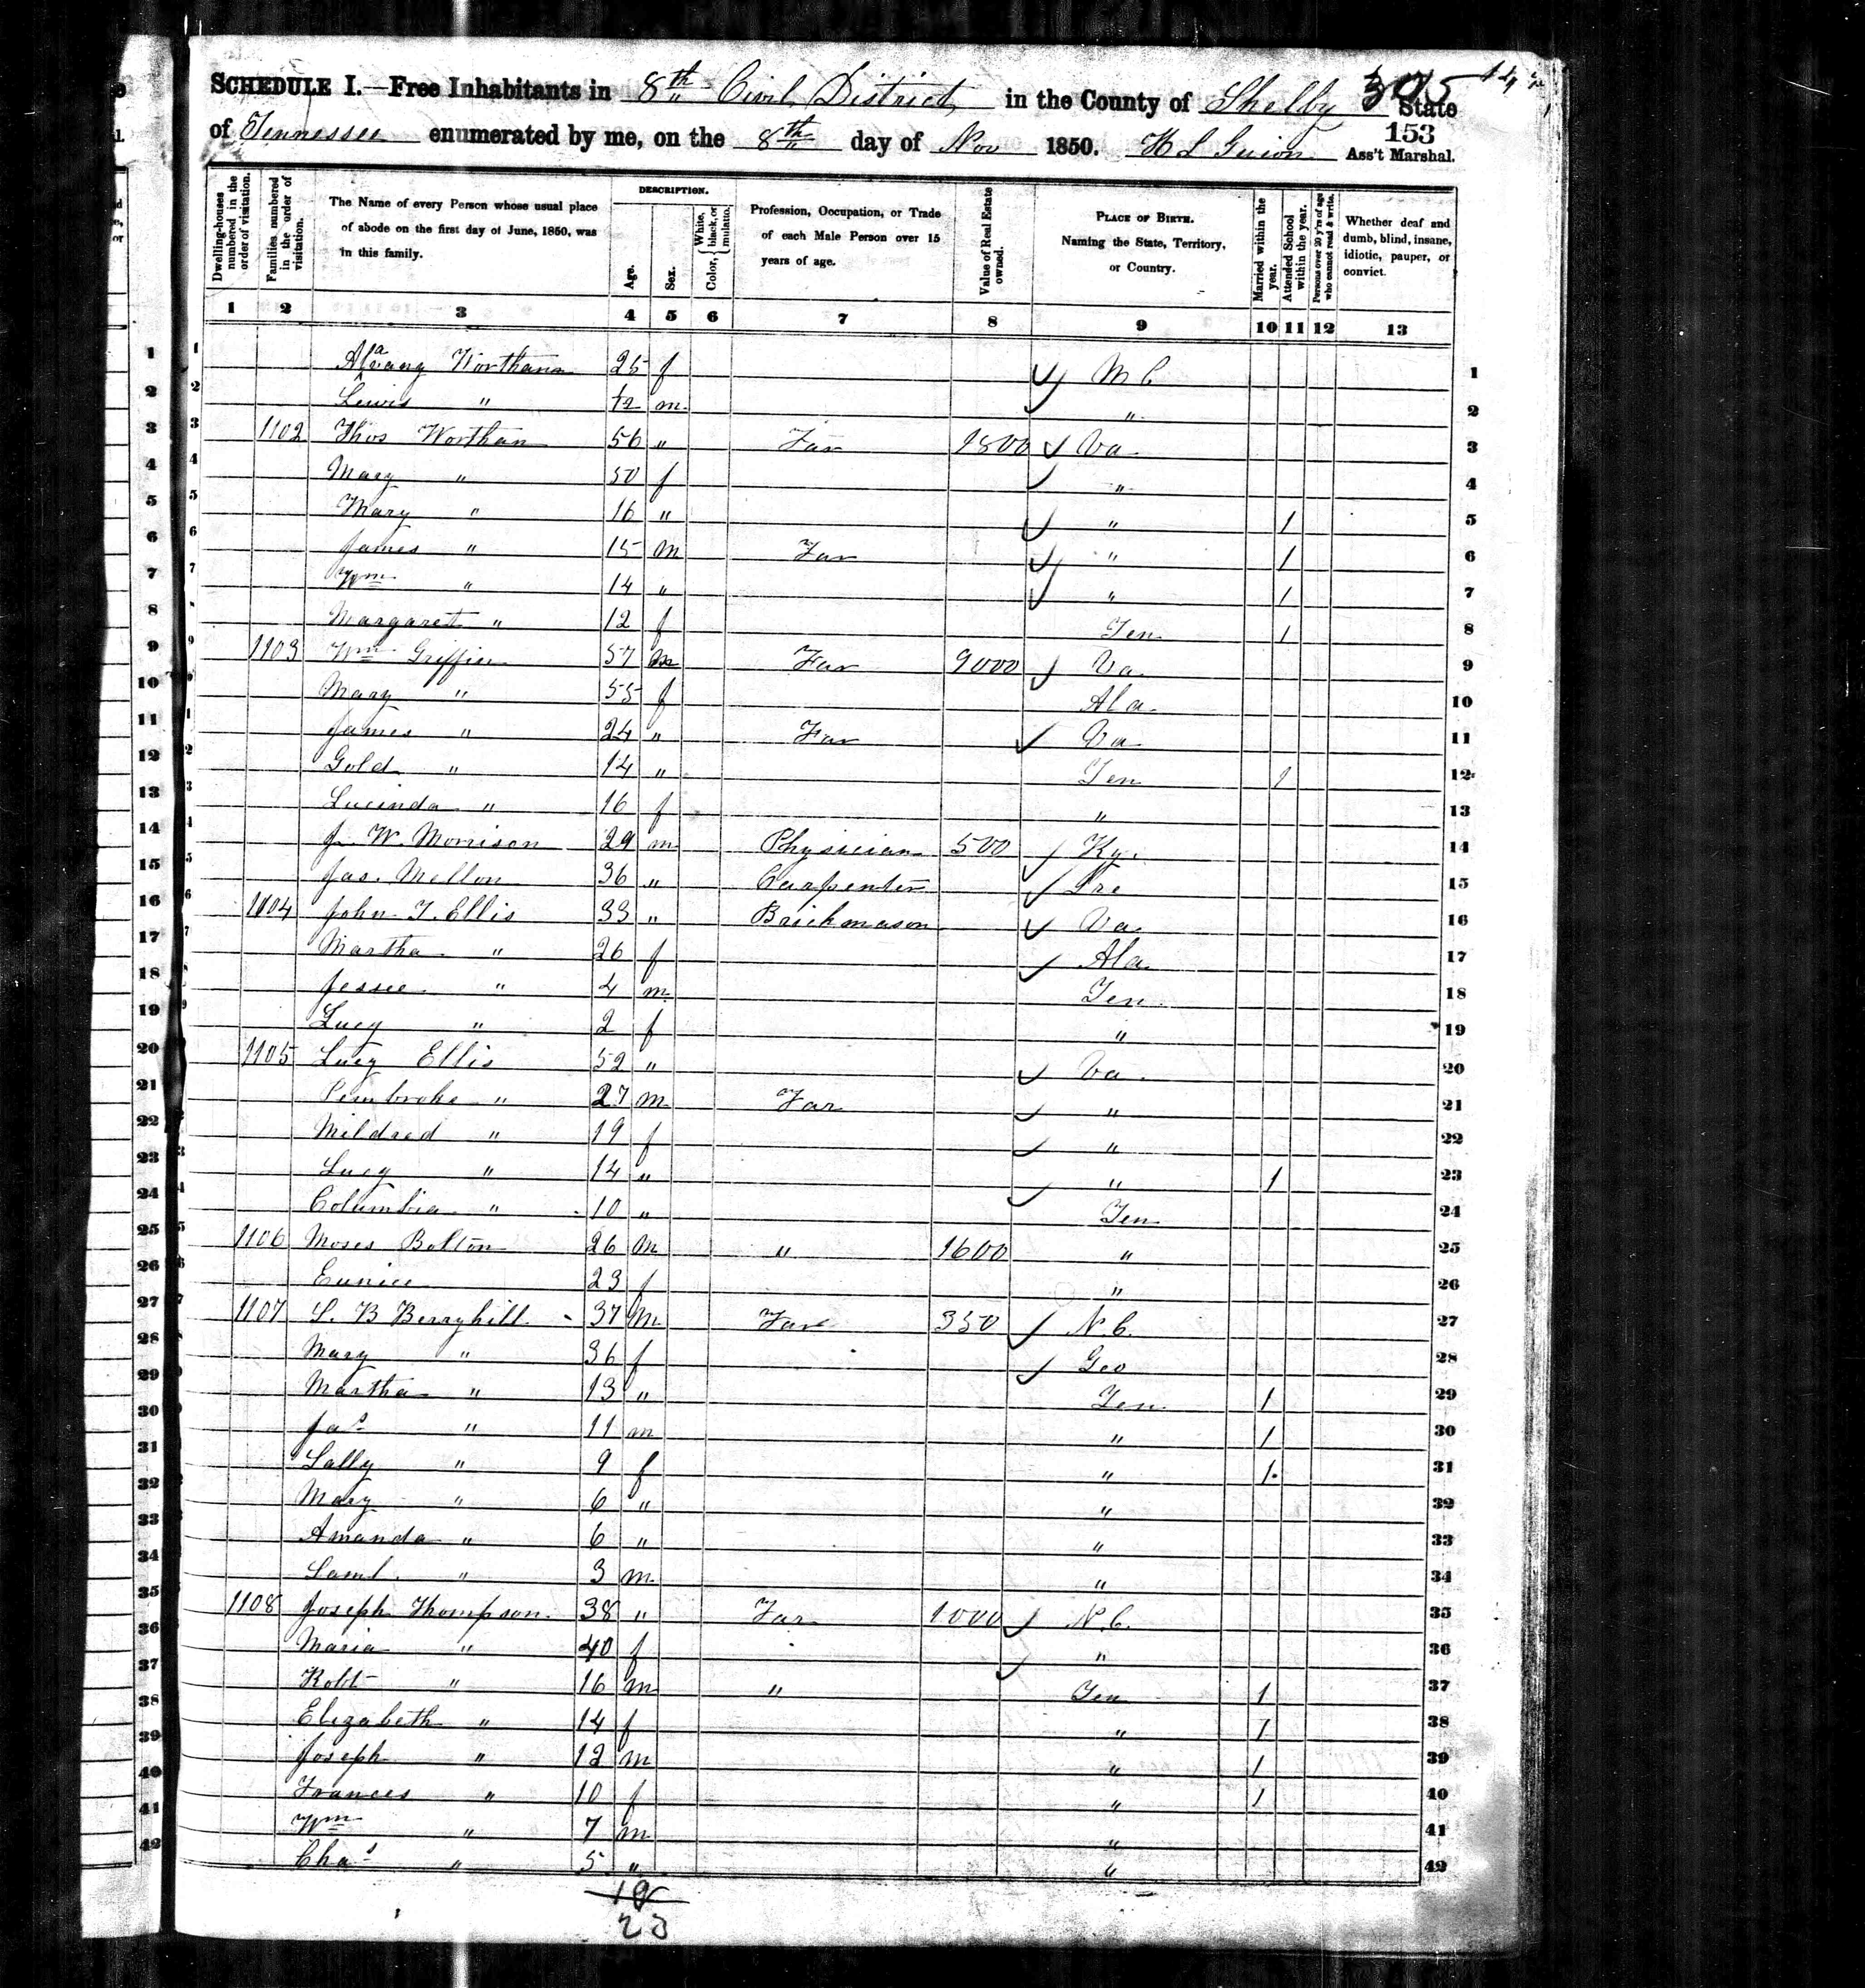 305
SCHEDULE I.—Free Inhabitants in 8th Civil District in the County of Shelby State
153
of Tennessee enumerated by me, on the 8th day of Nov 1850. H L Guion Ass't Marshal.
DESCRIPTION.
Dwelling-houses numbered in the order of visitation.
Families numbered in the order of visitation.
The Name of every Person whose usual place of abode on the first day of June, 1850, was in this family.
Age.
Sex.
Color, { White, black, or mulatto.
Profession, Occupation, or Trade of each Male Person over 15 years of age.
Value of Real Estate owned.
PLACE OF BIRTH. Naming the State, Territory, or Country.
Married within the year.
Attended School within the year.
Persons over 20 y'rs of age who cannot read & write.
Whether deaf and dumb, blind, insane, idiotic, pauper, or convict.
1 2 3 4 5 6 7 8 9 10 11 12 13
1 Worthan 25 f 1
2 Lewis " m " 2
3 1102 Thos Worthan 56 " Far 1800 Va 3
4 Mary " 50 f " 4
5 Mary " 16 " " 1 5
6 James " 15 m Far " 1 6
7 Wm " 14 " " 1 7
8 Margaret " 12 f Ten 1 8
9 1103 Wm Griffin 57 m Far 9000 Va 9
10 Mary " 55 f Ala 10
11 James " 24 " Far Va 11
12 Gold " 14 " Ten 1 12
13 Lucinda " 16 f " 13
14 J. W. Morrison 29 m Physician 500 Ky. 14
15 Jas. Mellon 36 " Carpenter Ire 15
16 1104 John T. Ellis 33 " Brickmason Va 16
17 Martha " 26 f Ala 17
18 Jessee " 4 m Ten 18
19 Lucy " 2 f " 19
20 1105 Lucy Ellis 52 " Va 20
21 Pembroke " 27 m Far " 21
22 Mildred " 19 f " 22
23 Lucy " 14 " " 1 23
24 Columbia " 10 " Ten 24
25 1106 Moses Bolton 26 m " 1600 " 25
26 Eunice 23 f " 26
27 1107 S. B Berryhill 37 m Far 350 N.C. 27
28 Mary " 36 f Geo 28
29 Martha " 13 " Ten 1 29
30 Jas " 11 m " 1 30
31 Sally " 9 f " 1 31
32 Mary " 6 " " 32
33 Amanda " 6 " " 33
34 Saml. " 3 m " 34
35 1108 Joseph Thompson 38 " Far 1000 N.C. 35
36 Maria " 40 f " 36
37 Robt " 16 m " Ten 1 37
38 Elizabeth " 14 f " 1 38
39 Joseph " 12 m " 1 39
40 Frances " 10 f " 1 40
41 Wm " 7 m " 41
42 Chas " 5 " " 42
23